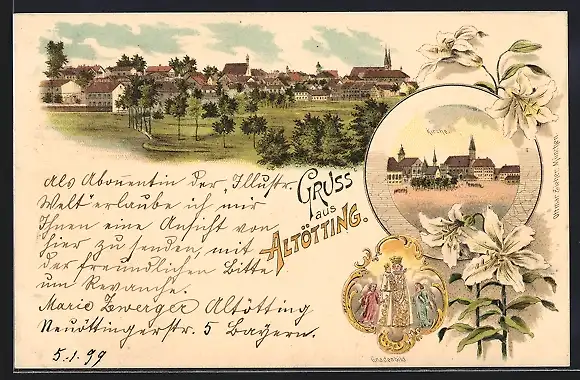 Kirche.
Gruss
aus
Altötting.
Als Abonnentin der „Illustr.
Welt" erlaube ich mir
Ihnen eine Ansicht von
hier zu senden, mit
der freundlichen Bitte
um Revanche.
Marie Zwerger Altötting
Neuöttingerstr. 5 Bayern.
5.1.99
Gnadenbild
Ottmar Zieher, München.